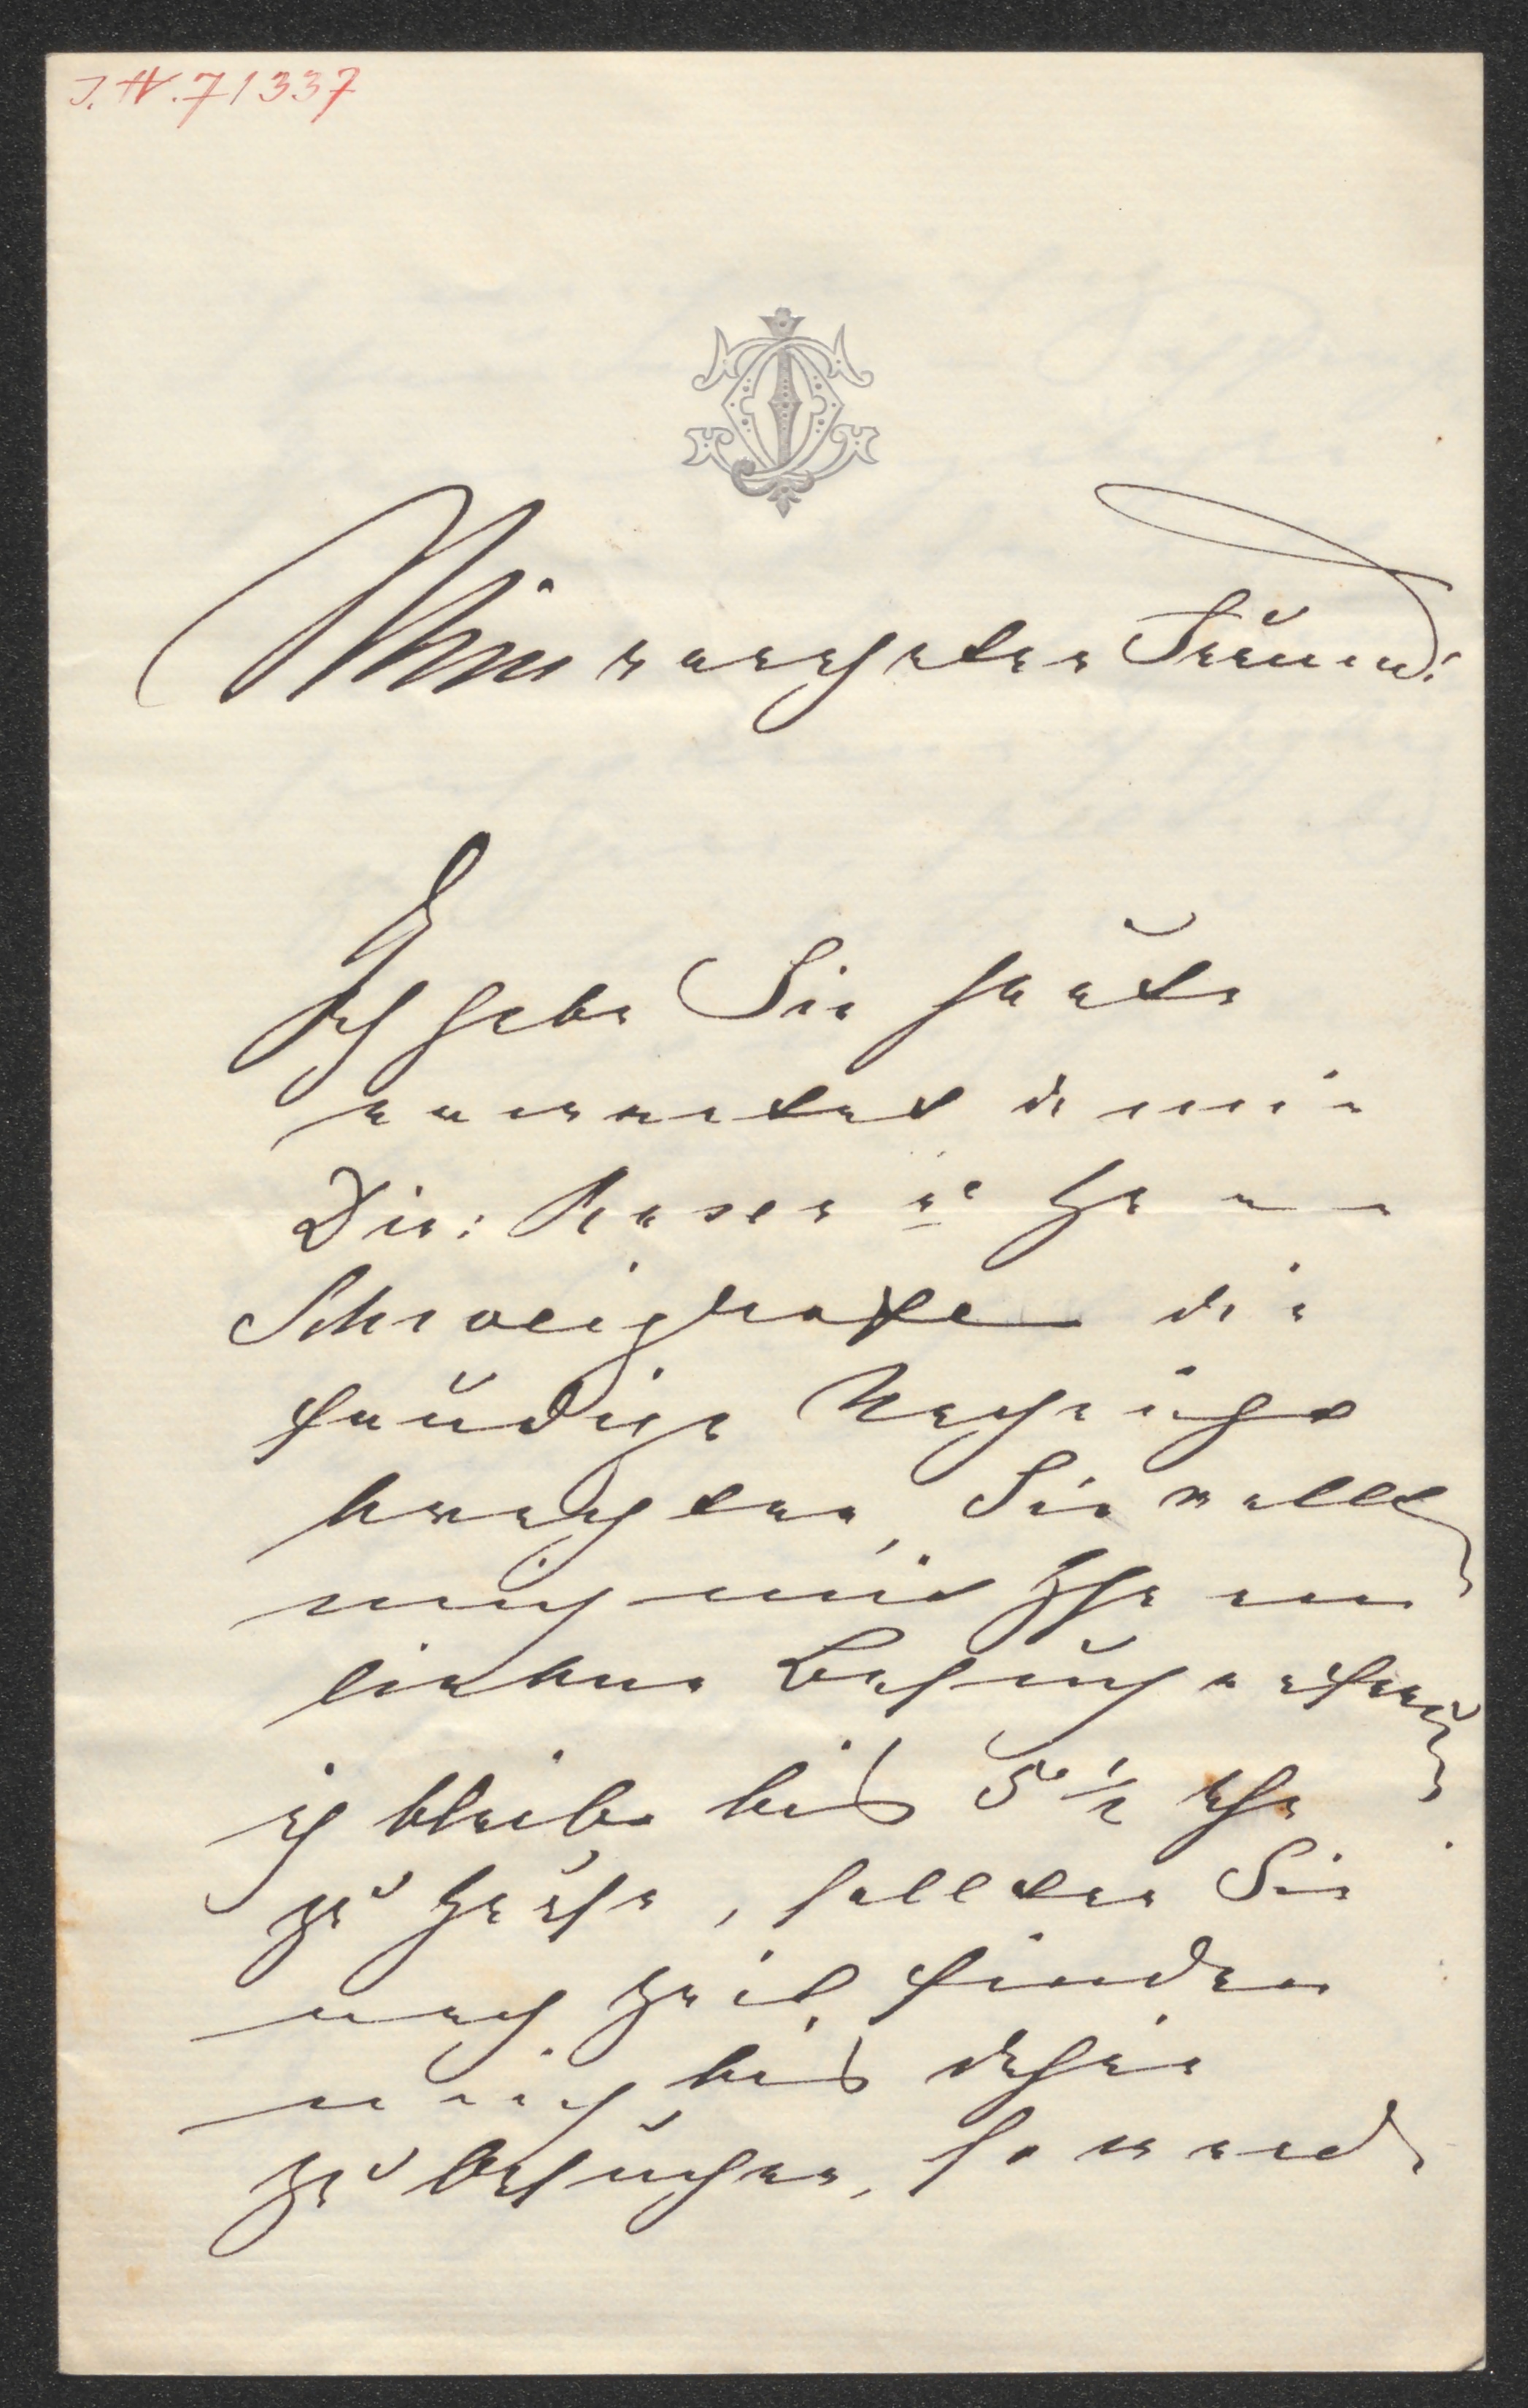 J.N. 71337
Mein verehrter Freund!
Ich habe Sie heute
erwartet da mir
Dir: Rosen u: Herr
Schweighofer die
freudige Nachricht
brachten, Sie wollen
mich mit Ihrem
lieben Besuch erfreuen
ich bleibe bis 5 ½ Uhr
zu Hause, sollten Sie
noch Zeit finden
mich bis dahin
zu besuchen, so werde